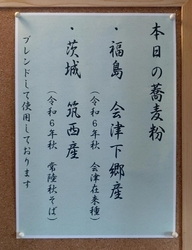 本日の蕎麦粉
・福島 会津下郷産
(令和6年秋 会津在来種)
・茨城 筑西産
(令和6年秋 常陸秋そば)
ブレンドして使用しております